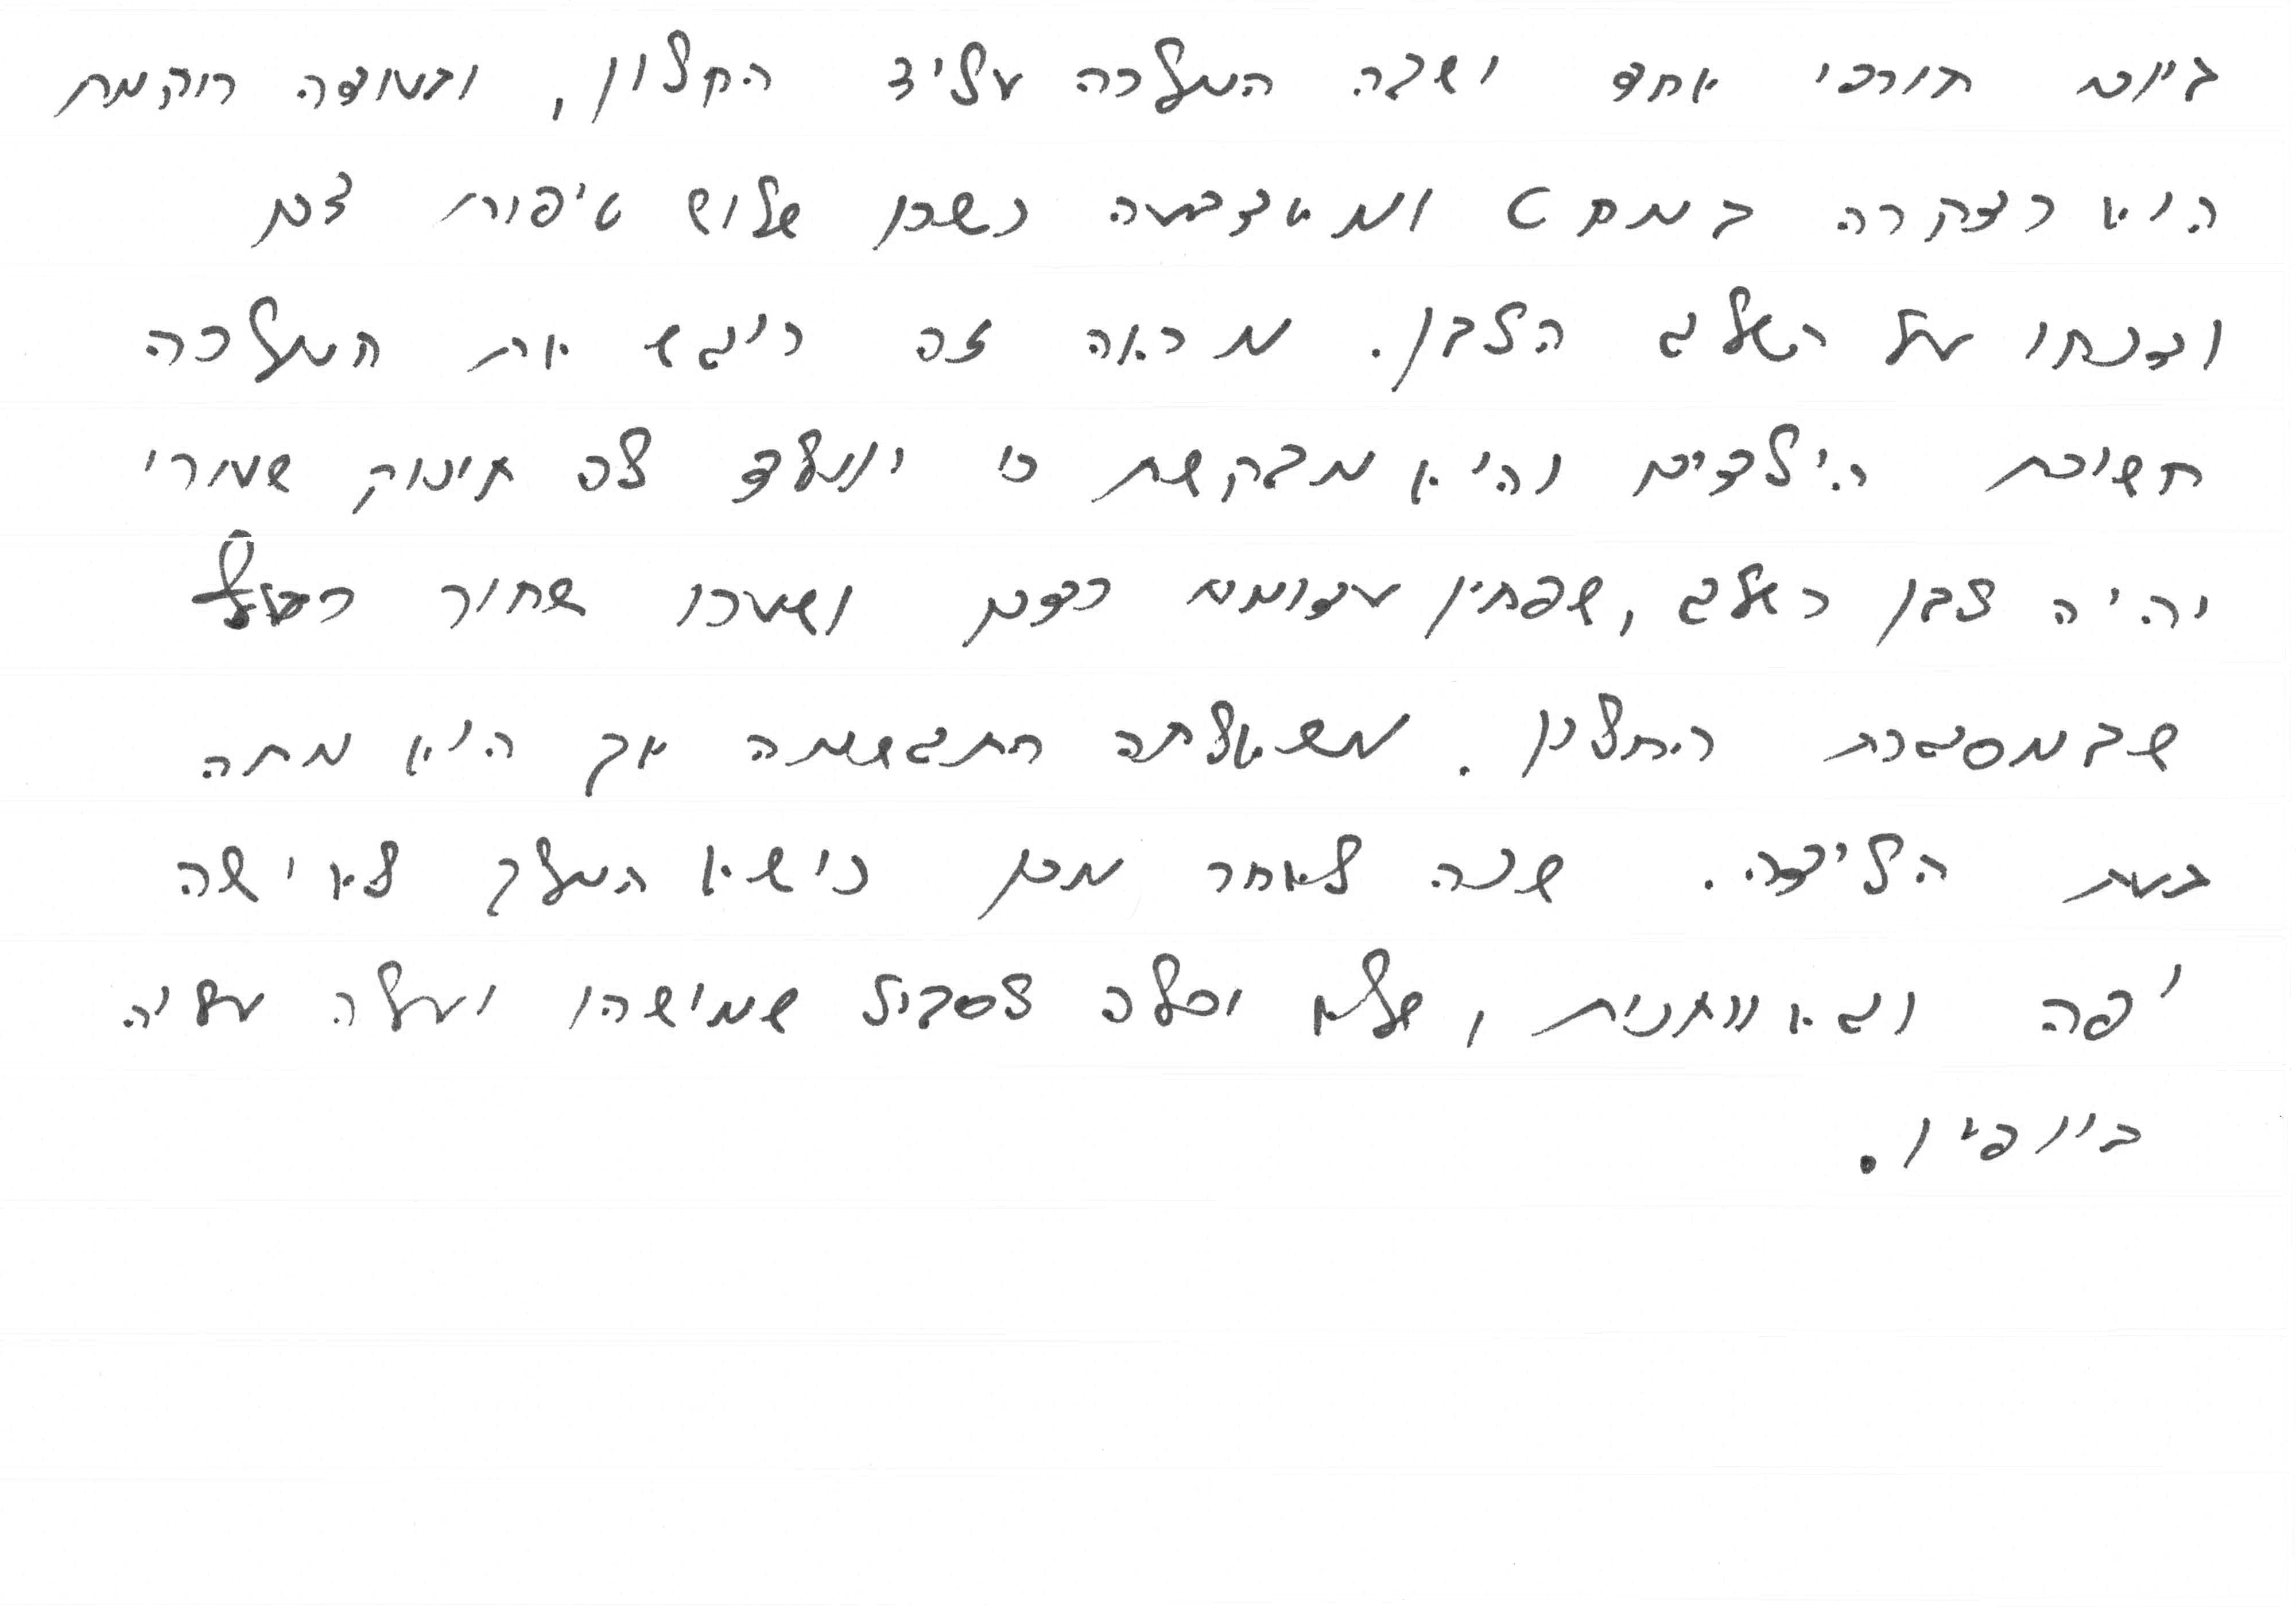 ביום חורפי אחד ישבה המלכה עליד החלון, ובעודה רוקמת
היא נדקרה במחט ומאצבעה נשרו שלוש טיפות דם
ונחו על השלג הלבן. מראה זה ריגש את המלכה
חשוכת הילדים והיא מבקשת כי ייוולד לה תינוק שעורו
יהיה לבן כשלג, שפתיו אדומות כדם ושערו שחור כעץ
שבמסגרת החלון. משאלתה התגשמה אך היא מתה
בעת הלידה. שנה לאחר מכן נישא המלך לאישה
יפה וגאוותנית, שלא יכלה לסבול שמישהו יעלה עליה
ביופיו.